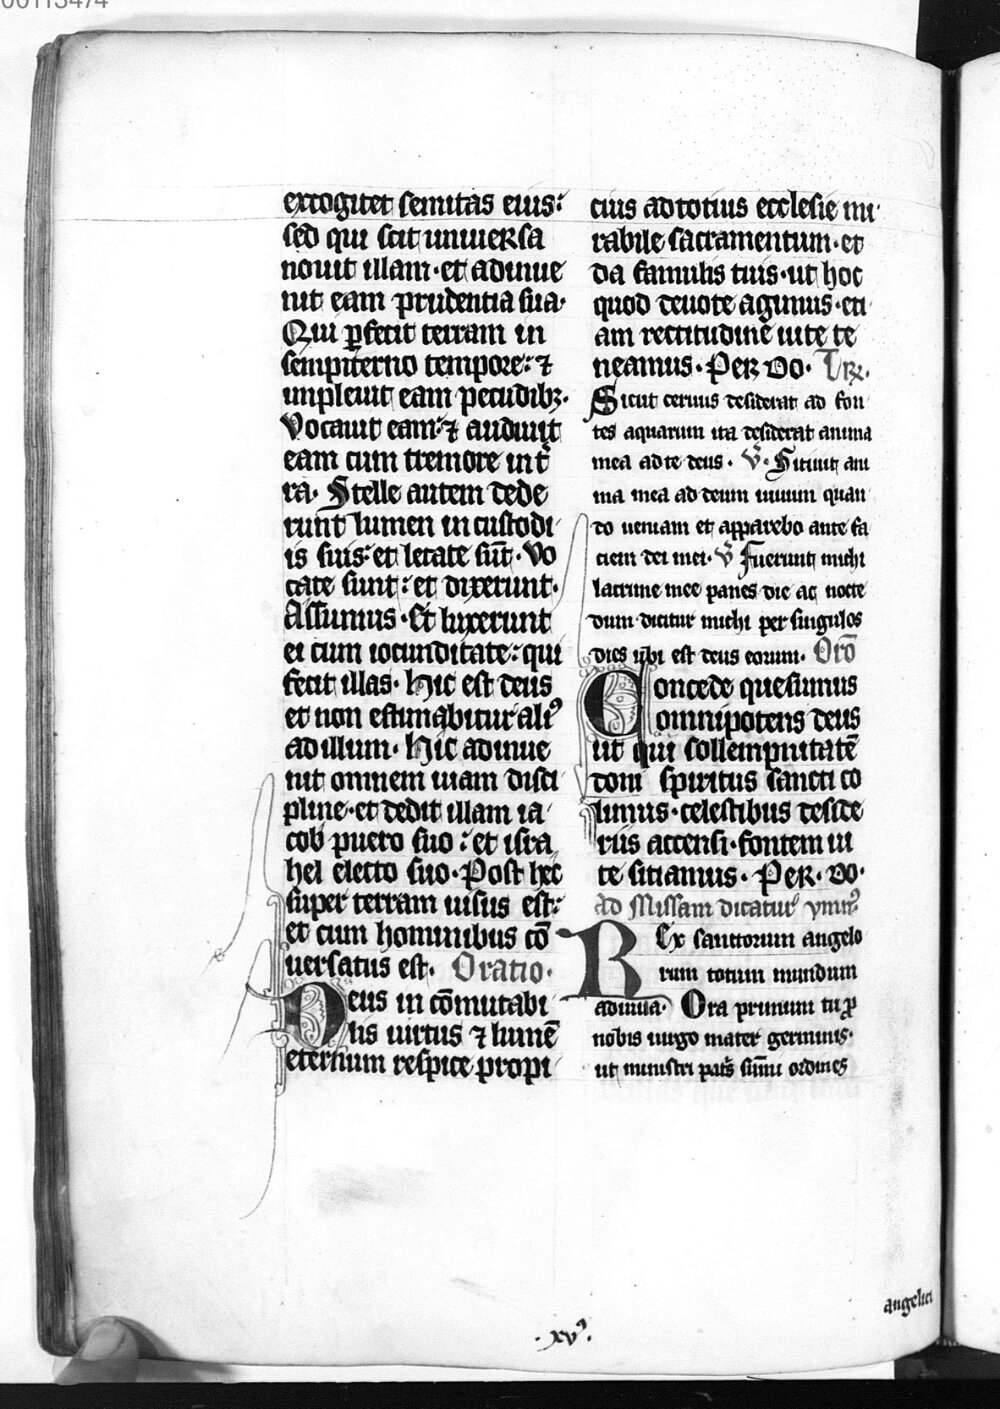 00113474
excogitet semitas eius:
sed qui scit uniuersa
nouit illam·et adinue
nit eam prudentia sua·
Qui ꝑfecit terram in
sempiterno tempore: ⁊
impleuit eam pecudibꝫ·
Vocauit eam:⁊ audiuit
eam cum tremore int̃
ra· Stelle autem dede
runt lumen in custodi
is suis:et letate sūt·Vo
cate sunt: et dixerunt·
Assumus·Et luxerunt
ei cum iocunditate: qui
fecit illas· Hic est deus
et non estimabitur aliꝰ
ad illum· Hic adinue
nit omnem uiam disci
pline·et dedit illam ia
cob puero suo: et isra
hel electo suo·Post hec
super terram uisus est:
et cum hominibus cō
uersatus est· Oratio·
Deus in cōmutabi
lis uirtus ⁊ lumē
eternum respice propi
cius ad totius ecclesie mi
rabile sacramentum·et
da famulis tuis·ut hoc
quod deuote agimus·eti
am rectitudine uite te
neamus· Per do· Trꝝ.
Sicut ceruus desiderat ad fon
tes aquarum ita desiderat anima
mea ad te deus· V̄· Sitiuit ani
ma mea ad deum uiuum quan
do ueniam et apparebo ante fa
ciem dei mei· V̄ Fuerunt michi
lacrime mee panes die ac nocte
dum dicitur michi per singulos
dies ubi est deus eorum· Orō
Concede quesumus
omnipotens deus
ut qui sollempnitatē
doni spiritus sancti co
limus·celestibus deside
riis accensi·fontem ui
te sitiamus· Per· do·
Ad Missam dicatur ymnꝰ
Rex sanctorum angelo
rum totum mundum
adiuua· Ora primum tu ꝓ
nobis uirgo mater germinis·
ut ministri patˢ sūmi ordines
angelici
·xvꝰ·